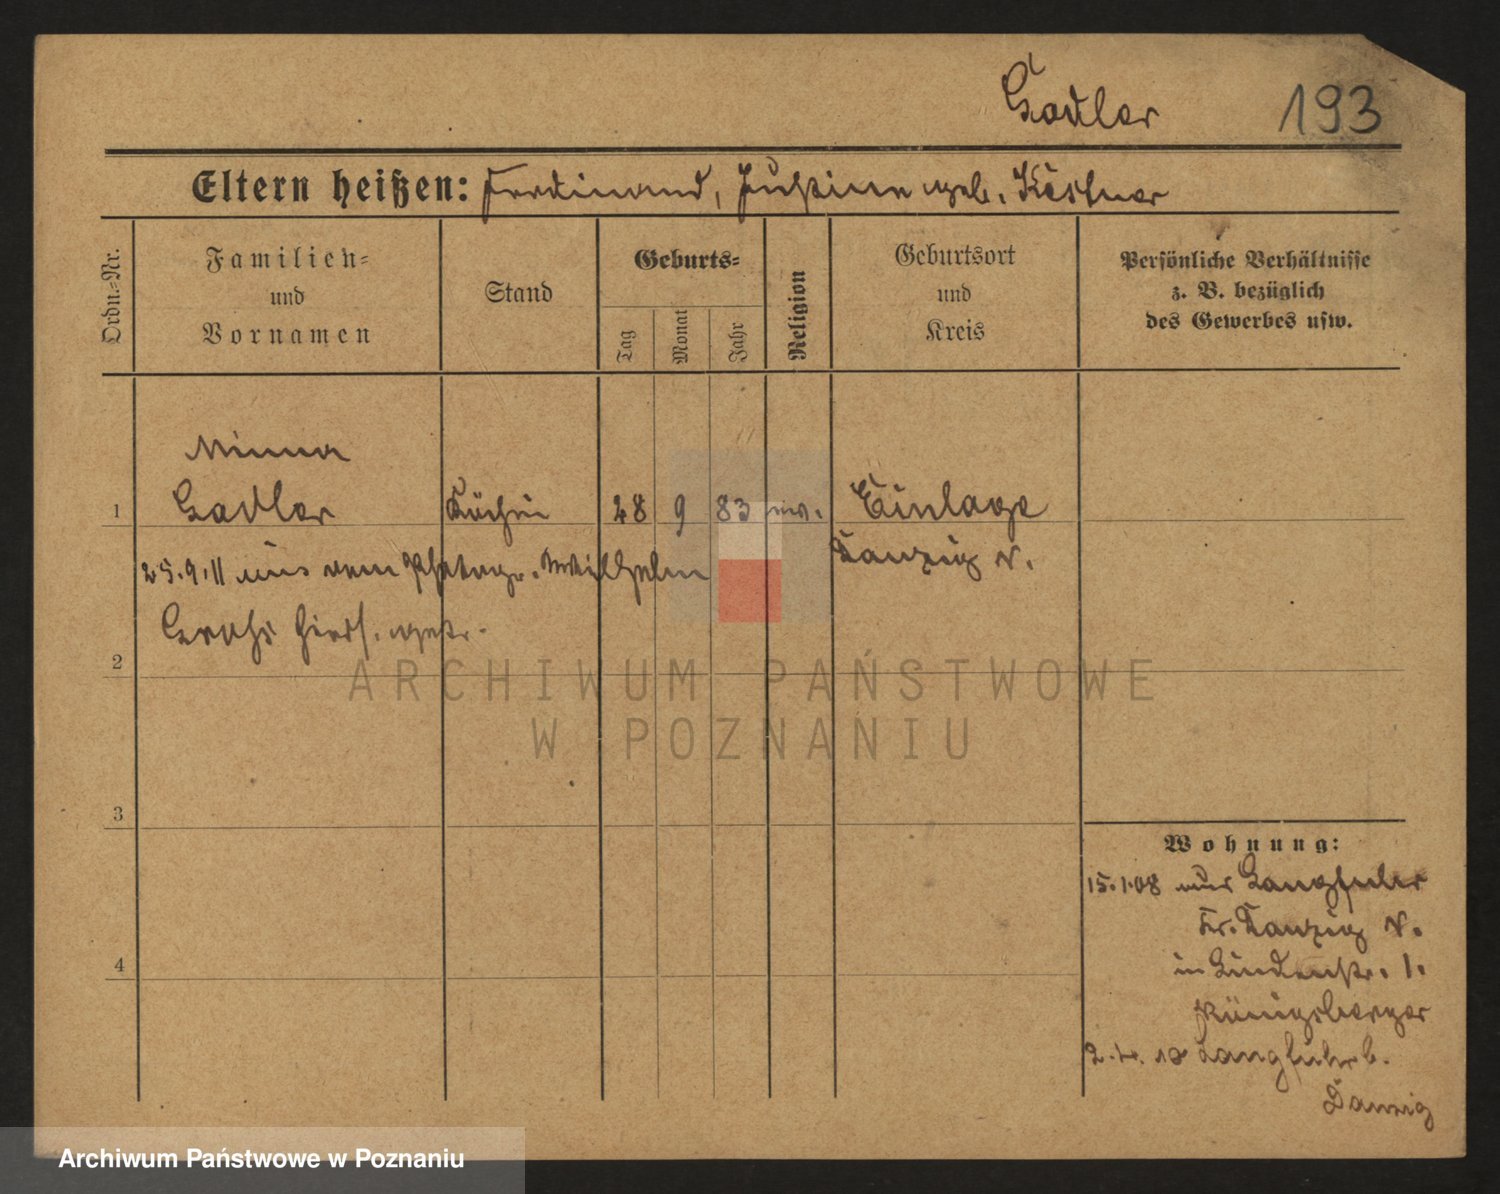 Gadler 193
Eltern heißen: Ferdinand, Justine geb. Köstner
Ordn.-Nr.
Familien-
und
Vornamen
Stand
Geburts-
Tag
Monat
Jahr
Religion
Geburtsort
und
Kreis
Persönliche Verhältnisse
z. B. bezüglich
des Gewerbes usw.
Minna
1 Gadler Köchin 28 9 83 ev. Einlage
Danzig N.
25.9.11 mit dem Wilhelm
2
3
4
Wohnung:
15.1.08 aus Langfuhr
Kr. Danzig N.
in Lindenstr. 1.
Königsberger
2.4.10 Langfuhr b.
Danzig
ARCHIWUM PAŃSTWOWE
W POZNANIU
Archiwum Państwowe w Poznaniu